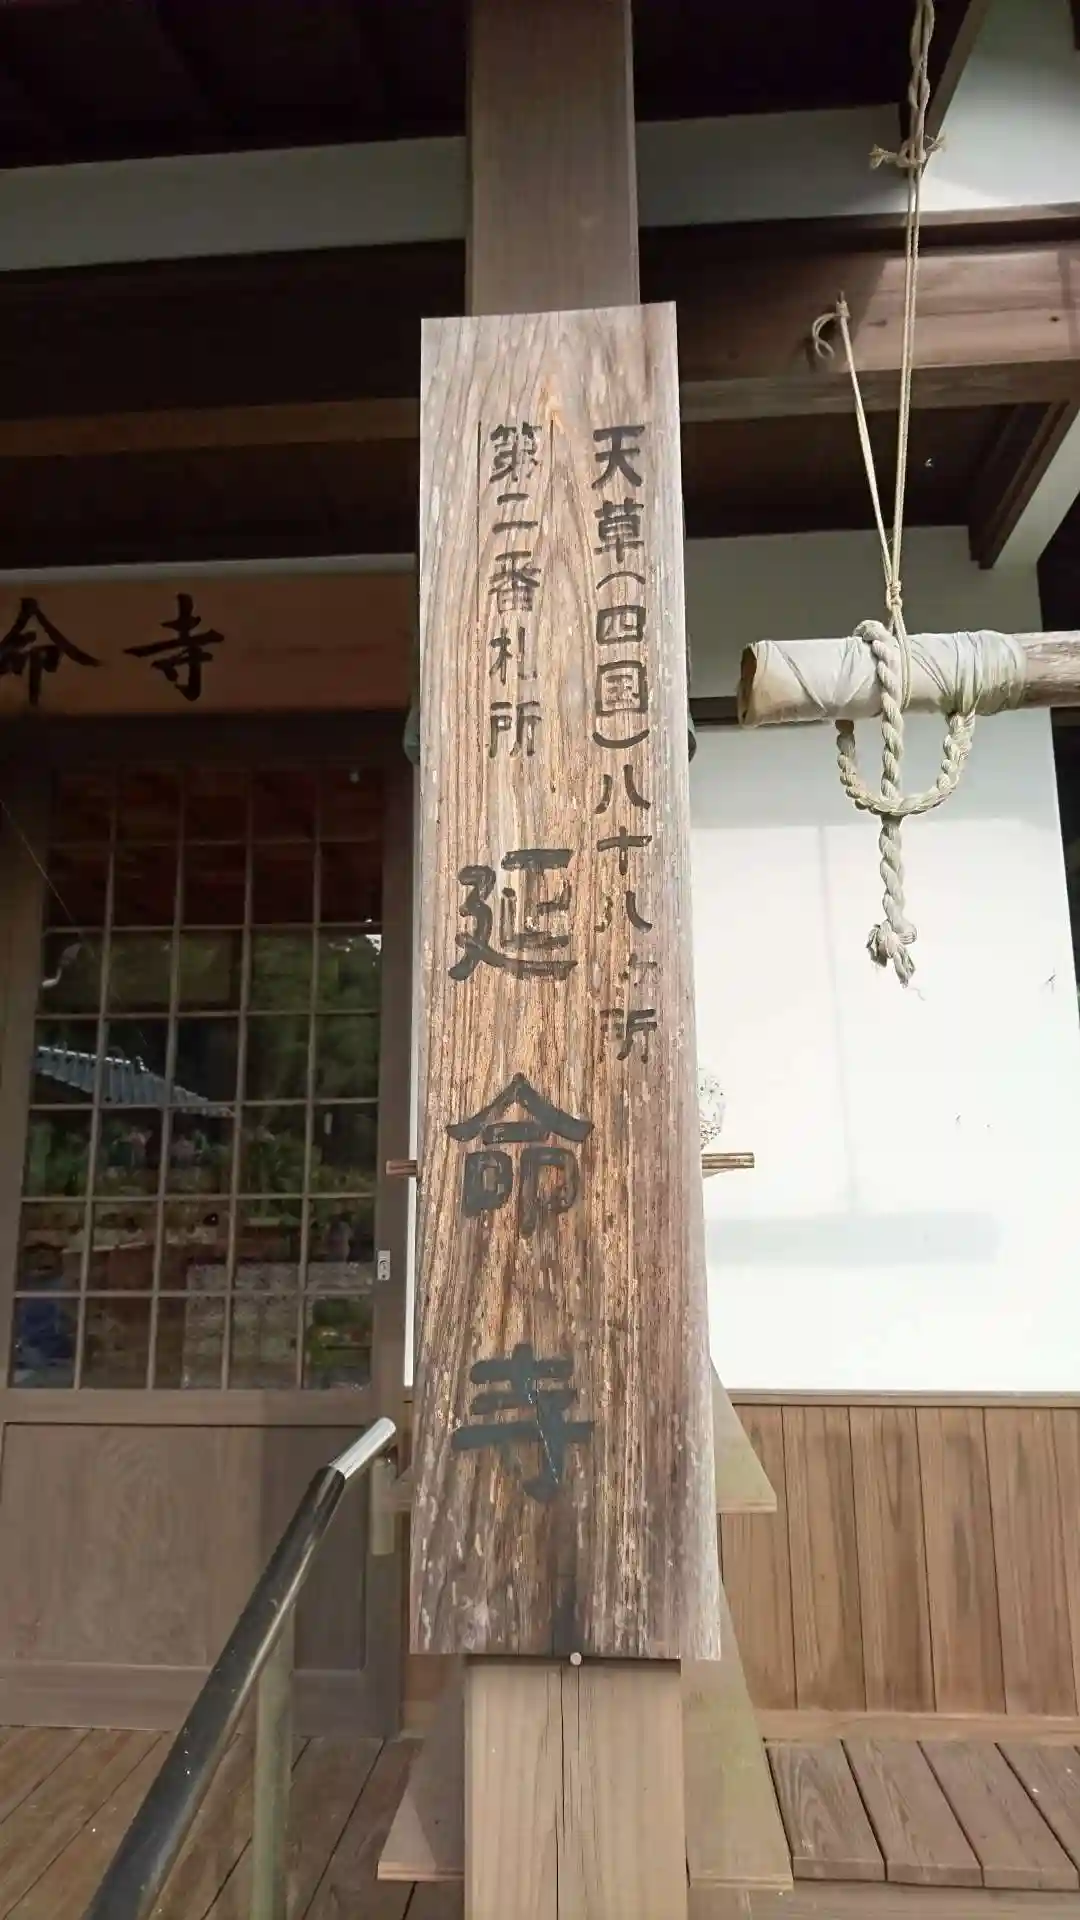 天草(四国)八十八ヶ所
第二番札所
延命寺
命寺